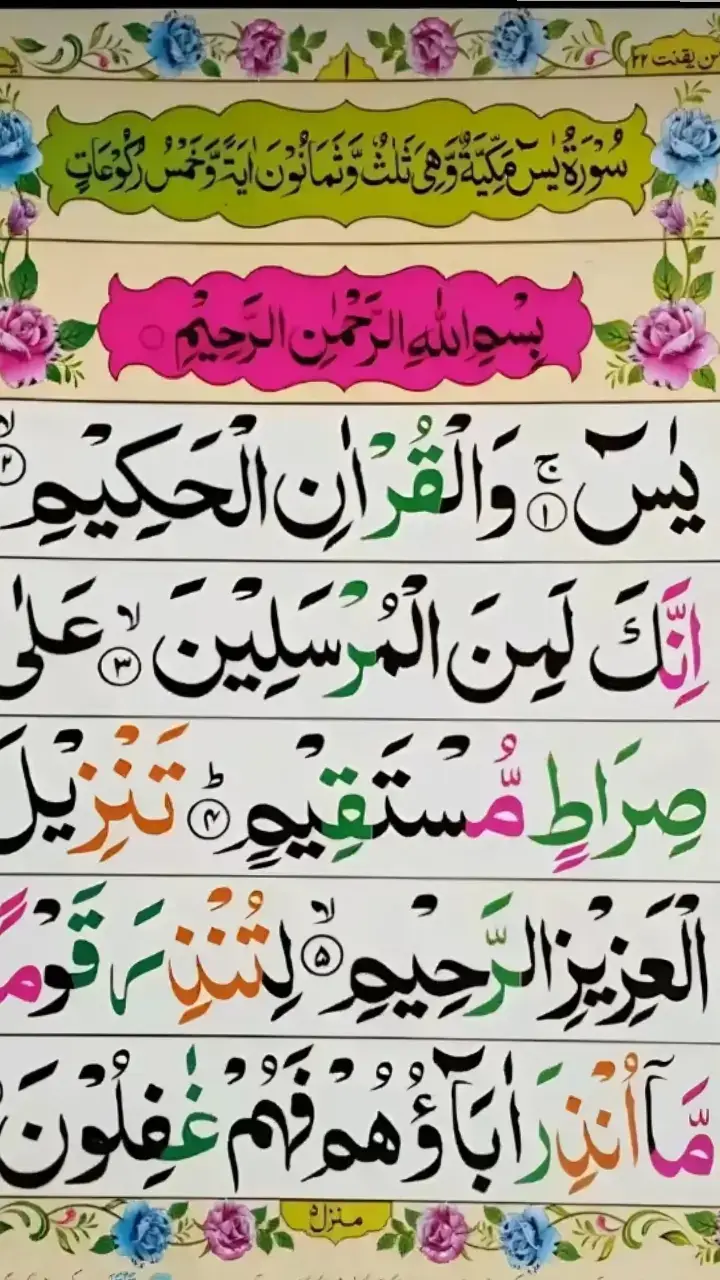 ۱
ومن یقنت ۲۲
سُوْرَةُ یٰسٓ مَكِّیَّةٌ وَّهِیَ ثَلٰثٌ وَّثَمَانُوْنَ اٰیَةً وَّخَمْسُ رُكُوْعَاتٍ
بِسْمِ اللّٰهِ الرَّحْمٰنِ الرَّحِیْمِ
یٰسٓ ۚ﴿۱﴾ وَالْقُرْاٰنِ الْحَكِیْمِ ۙ﴿۲﴾
اِنَّكَ لَمِنَ الْمُرْسَلِیْنَ ۙ﴿۳﴾ عَلٰی
صِرَاطٍ مُّسْتَقِیْمٍ ؕ﴿۴﴾ تَنْزِیْلَ
الْعَزِیْزِ الرَّحِیْمِ ۙ﴿۵﴾ لِتُنْذِرَ قَوْمًا
مَّاۤ اُنْذِرَ اٰبَآؤُهُمْ فَهُمْ غٰفِلُوْنَ
منزل ۵